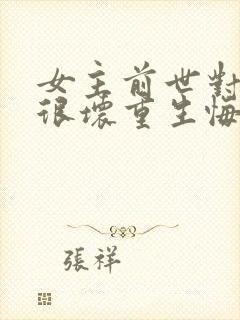 女主前世對
很壞重生悔
張祥